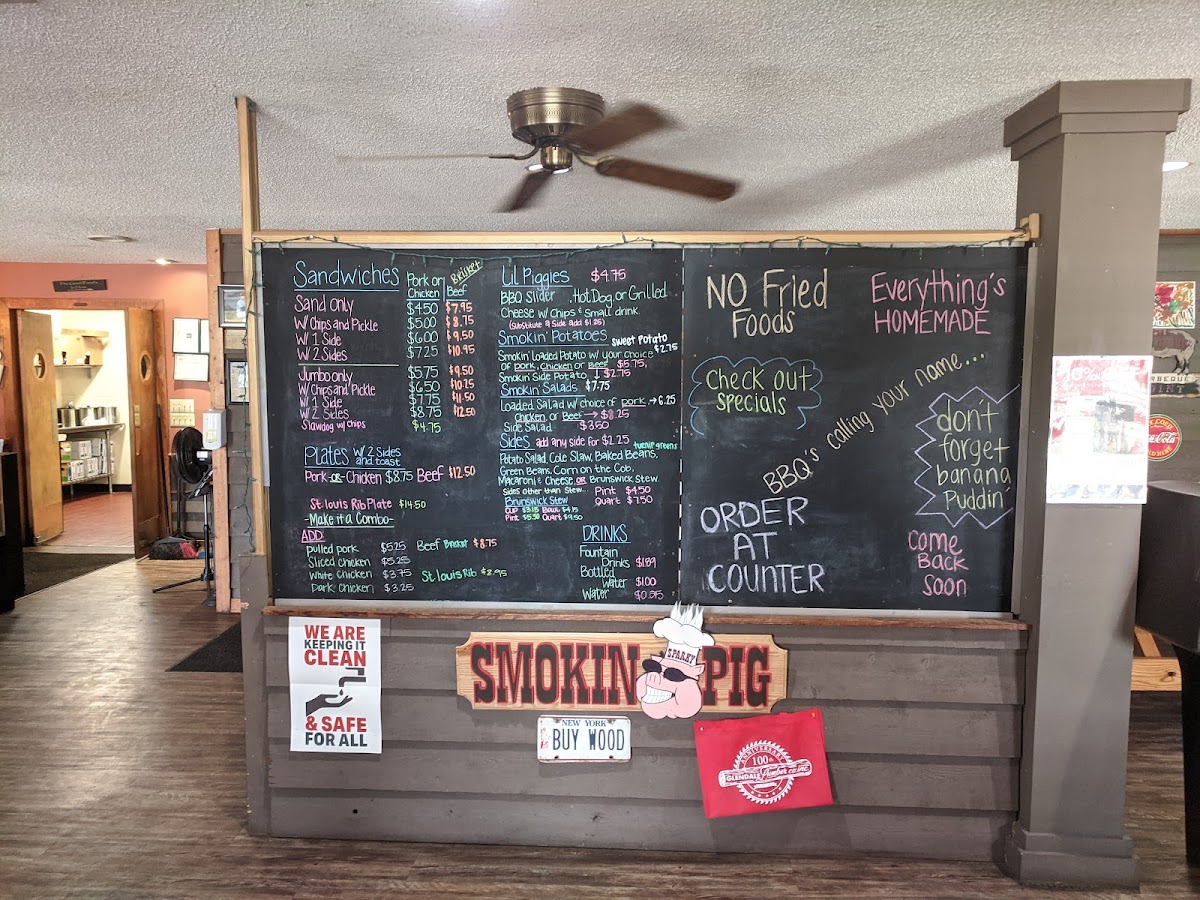 Sandwiches
Pork or Chicken
Brisket
Beef
Sand only $4.50 $7.95
W/ Chips and Pickle $5.00 $8.75
W/ 1 Side $6.00 $9.50
W/ 2 Sides $7.25 $10.95
Jumbo only $5.75 $9.50
W/ Chips and Pickle $6.50 $10.25
W/ 1 Side $7.75 $11.50
W/ 2 Sides $8.75 $12.50
Slawdog w/ Chips $4.75
Plates W/ 2 Sides
and toast
Pork -or- Chicken $8.75 Beef $12.50
St. louis Rib Plate $14.50
-Make it a Combo-
ADD:
pulled pork $5.25 Beef Brisket $8.75
Sliced chicken $5.25
White Chicken $3.75 St louis Rib $8.95
Dark Chicken $3.25
Lil Piggies $4.75
BBQ Slider, Hot Dog, or Grilled
Cheese w/ Chips & Small drink.
(Substitute a Side add $1.25)
Smokin' Potatoes
sweet potato
$2.75
Smokin' Loaded Potato w/ your choice
of pork, Chicken or Beef $5.75,
Smokin Side Potato $2.75
Smokin' Salads $7.75
Loaded Salad w/ choice of pork → 6.25
Chicken or Beef → $8.25
Side Salad $3.50
Sides add any side for $2.25
turnip greens
Potato Salad, Cole Slaw, Baked Beans,
Green Beans, Corn on the Cob,
Macaroni & Cheese, OR Brunswick Stew
Sides other than Stew... Pint $4.50
Quart $7.50
Brunswick Stew
Cup $3.15 Bowl $4.15
Pint $5.50 Quart $9.50
DRINKS
Fountain
Drinks $1.89
Bottled
Water $1.00
Water
NO Fried
Foods
Everything's
HOMEMADE
Check out
specials
BBQ's calling your name....
don't
forget
banana
Puddin'
ORDER
AT
COUNTER
Come
Back
Soon
WE ARE
KEEPING IT
CLEAN
& SAFE
FOR ALL
SMOKIN PIG
SPARKY
NEW YORK
BUY WOOD
ANNIVERSARY
100th
GLENDALE Lumber Co. Inc.
Coca-Cola